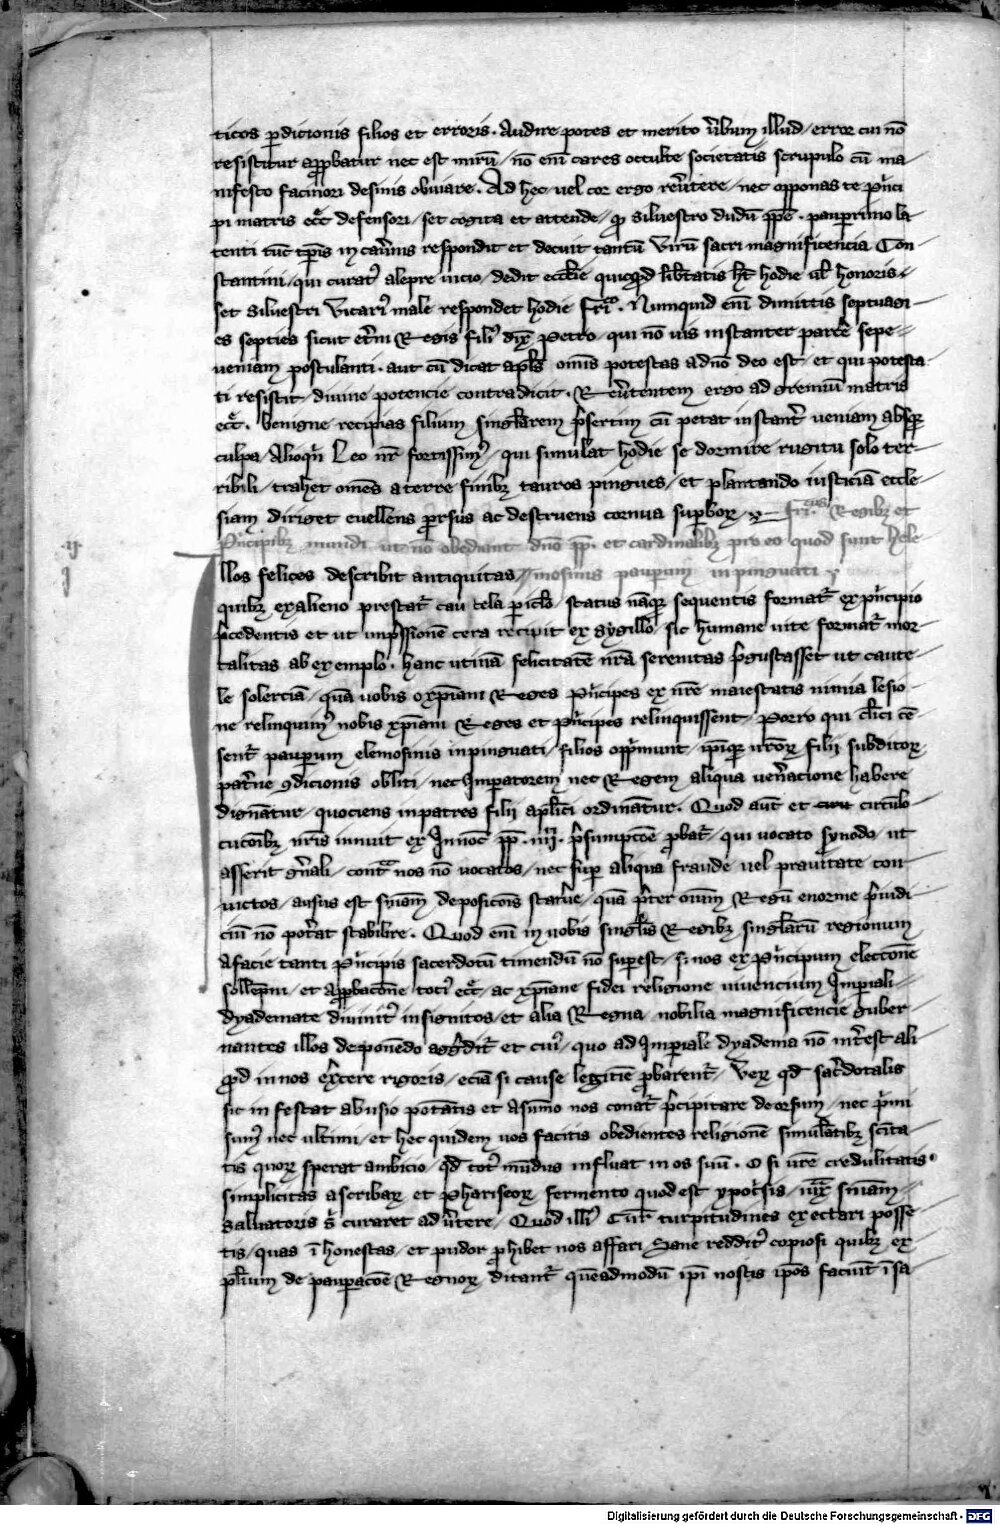 ticos ꝑdicionis filios et erroris. Audire potes et merito ũbum illud / error cui nõ
resistitur aꝓbatur nec est mirũ / nõ em̃ cares occulte societatis scrupulo cũ ma-
nifesto facinori desinis obviare. Ad hec vel cor ergo reũtere / nec opponas te pͥnci
pi matris ecc̃ defensori / set cogita et attende / ꝙ Siluestro dudũ pp̃e. pauꝑrimo la
tenti tũc tp̃is in cau̾nis respondit et decuit tantũ virũ sacri magnificencia Con-
stantini / qui curatꝰ a lepre uicio / dedit ecclesie quicꝙd lib̾tatis ht̃ hodie ul̃ honoris /
set Siluestri vicariꝰ male respondet hodie Fri͛co. Nunquid em̃ dimittis septuagi-
es septies sicut et̾ni Regis filiꝰ dix̃ Petro / qui nõ uis instanter parc̾e sepe-
ueniam postulanti. aut cũ dicat apl̃s om̃is potestas a dño deo est / et qui potesta
ti resistit / diuine potencie contradicit. Reu̾tentem ergo ad gremiũ matris
ecc̃. benigne recipias filium singl̃arem p̃sertim cũ petat instant̾ ueniam absqꝫ
culpa / Alioqͥn Leo nr̃ fortissimꝰ / qui simulat hodie se dormire rugitu solo ter-
ribili / trahet om̃es a terre finibꝫ tauros pingues / et plantando iusticiã eccle-
siam diriget euellens ꝓrsus ac destruens cornua suꝑboꝝ Fri͛cus Regibꝫ et
Pͥncipibꝫ mundi ut nõ obediant dño pp̃. et cardinalibꝫ pro eo quod sunt hele-
Illos felices describit antiquitas // mosinis pauperum inpinguati
quibꝫ ex alieno prestat̃ cau tela ꝑiclo / status nãqꝫ sequentis format̃ ex pͥncipio
p̃cedentis et ut imp̃ssionẽ cera recipit ex sygillo / sic humane uite format̃ mor-
talitas ab exemplo. hanc utinã felicitatẽ nr̃a serenitas p̃gustasset ut caute-
le solerciã / quã uobis o xp̃iani Reges Pͥncipes ex nr̃e maiestatis nimia lesio-
ne relinquimꝰ nobis xp̃iani Reges et Pͥncipes relinquissent / Porro qui cl̾ici cẽ-
sent̃ pauꝑum elemosinis inpinguati / filios opp̃munt / ip̃iqꝫ nr̃oꝝ filii subditoꝝ
pat̾ne ꝯdicionis obliti / nec Imperatorem nec Regem aliqua ueñacione habere
dignãtur / quociens in patres filii apl̃ici ordinãtur. Quod aũt et circũlo-
cucõibꝫ nr̃is innuit ex Innoc̃ pp̃. iiij. p̃sumpcõe ꝓbat̃ / qui uocato synodo / ut
asserit gñali / cont̃ nos nõ uocatos / nec suꝑ aliqua fraude uel prauitate con-
uictos / ausus est sñiam deposicõis statu̾e / quã p̃ter oniũ Regũ enorme p̃iudi
ciũ nõ pot̾at stabilire. Quod em̃ in uobis singl̃is Regibꝫ singl̃arũ regionum
a facie tanti Pͥncipis sacerdotũ timendũ nõ suꝑest / si nos ex Pͥncipum eleccõne
sollẽpni / et aꝓbacõne totiꝰ ecc̃ ac xp̃iane fidei religione uiuencium Imꝑiali-
dyademate diuinit̾ insignitos / et alia Regna nobilia magnificencie guber-
nantes illos deponẽdo agg̾dit̃ et cuiꝰ / quo ad Imꝑiale dyadema nõ int̾est ali
ꝙd in nos ex̾cere rigoris / eciã si cause legitĩe ꝓbarent̃ / Verꝫ qd̃ sac̾dotalis
sic infestat abusio potãtis et a sũmo nos conat̃ p̃cipitare deorsum / nec p̃mi
sumꝰ nec ultimi / et hec quidem uos facitis obedientes religionẽ simulãtibꝫ scĩta-
tis quoꝝ sperat ambicio / qd̃ totꝰ mũdus influat in os suũ. O si ur̃e credulitatis
simplicitas a scribaꝝ et Phariseoꝝ fermento quod est ypoc̾sis / iux̃ sñiam
Saluatoris s̃ curaret adũtere / Quod illiꝰ Cur̃ turpitudines exectari posse-
tis / quas ĩhonestas / et pudor ꝓhibet nos affari Sane redditꝰ copiosi quibꝫ ex
pl̃ium de pauꝑacõe Regnoꝝ ditant̃ quẽadmodũ ip̃i nostis ip̃os faciũt ĩsa
Digitalisierung gefördert durch die Deutsche Forschungsgemeinschaft - DFG